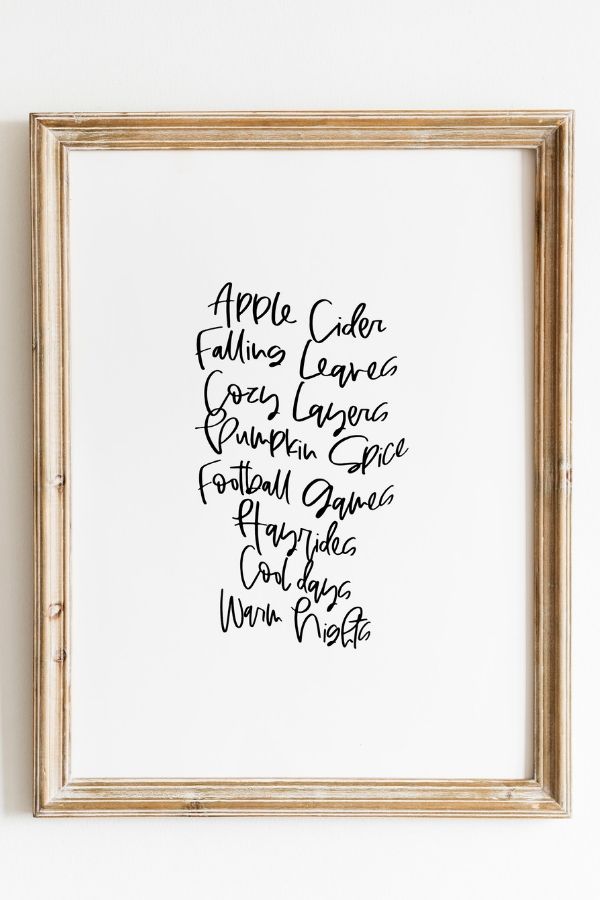 Apple Cider
Falling Leaves
Cozy Layers
Pumpkin Spice
Football Games
Hayrides
Cool days
Warm Nights